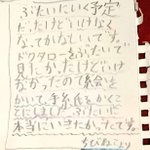 ぶたいにいく予定
だったけどいけなく
なってかなしいです。
ドクタローをぶたいで
見たかったけどいけ
なかったので絵を
かいて、手紙をかくこ
とにしました。ぶたいに
本当にいきたかったです。
ちびねこより